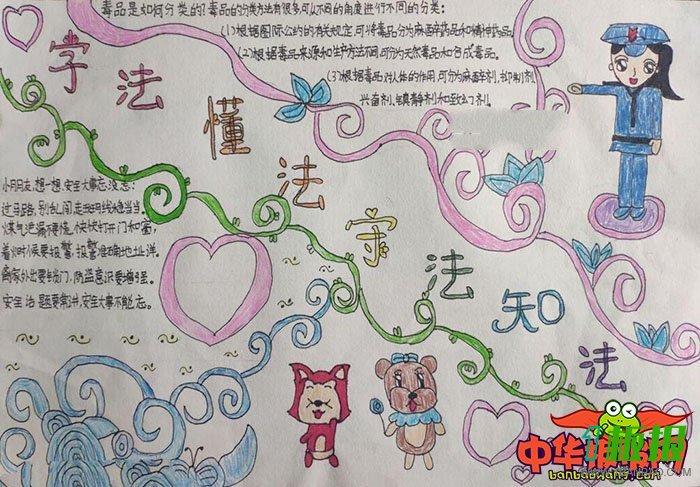 毒品是如何分类的?毒品的分类方法有很多可以不同的角度进行不同的分类:
(1)根据国际公约的有关规定,可将毒品分为麻醉药品和精神药品。
(2)根据毒品来源和生产方法不同,可分为天然毒品和合成毒品。
(3)根据毒品对人体的作用,可分为麻醉剂、抑制剂、
兴奋剂、镇静剂和致幻剂。
学法懂法守法知法
小朋友,想一想,安全大事忘没忘:
过马路,别乱闯,走斑马线
煤气泄漏不要慌,快快打开门和窗,
着火时候要报警,报警准确地址详。
离家外出要锁门,防盗意识要增强。
安全话题要常讲,安全大事不能忘。
中华
板报网
banbaowang.com